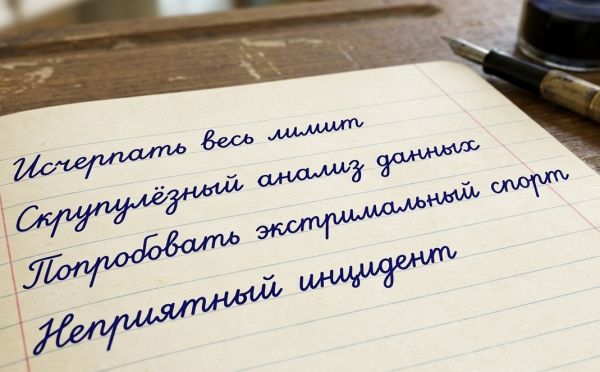 Исчерпать весь лимит
Скрупулёзный анализ данных
Попробовать экстримальный спорт
Неприятный инцидент